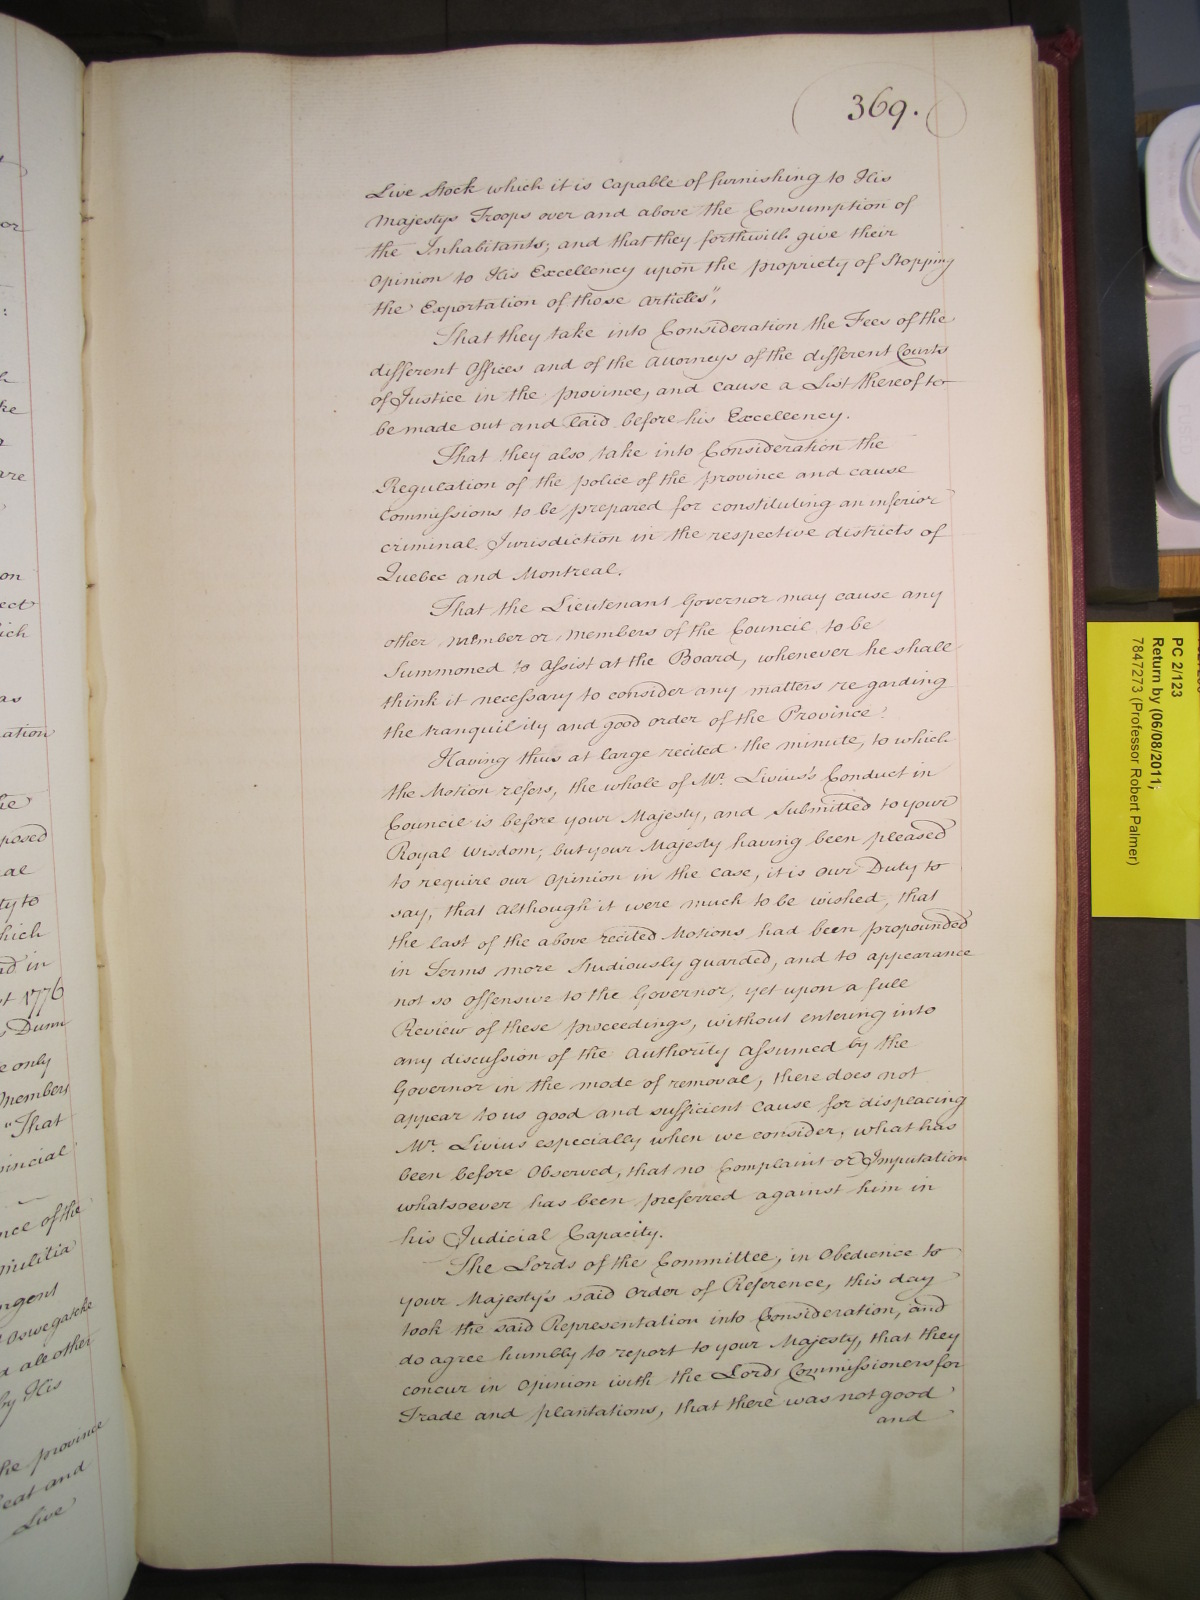 369.
Live Stock which it is Capable of furnishing to His
Majestys Troops over and above the Consumption of
the Inhabitants; and that they forthwith give their
Opinion to His Excellency upon the propriety of Stopping
the Exportation of those Articles",
That they take into Consideration the Fees of the
different Offices and of the Attorneys of the different Courts
of Justice in the province, and cause a List thereof to
be made out and laid before his Excellency.
That they also take into Consideration the
Regulation of the police of the province and cause
Commissions to be prepared for constituting an inferior
criminal Jurisdiction in the respective districts of
Quebec and Montreal.
That the Lieutenant Governor may cause any
other Member or Members of the Council to be
Summoned to Assist at the Board, whenever he shall
think it necessary to consider any matters regarding
the tranquility and good order of the Province.
Having thus at large recited the minute, to which
the Motion refers, the whole of Mr. Livius's Conduct in
Council is before your Majesty, and Submitted to your
Royal Wisdom; but your Majesty having been pleased
to require our Opinion in the case, it is our Duty to
say, that although it were much to be wished, that
the last of the above recited Motions had been propounded
in Terms more Studiously guarded, and to appearance
not so offensive to the Governor, yet upon a full
Review of these proceedings, without entering into
any discussion of the Authority assumed by the
Governor in the mode of removal, there does not
appear to us good and sufficient cause for displacing
Mr. Livius especially when we consider, what has
been before Observed, that no Complaint or Imputation
whatsoever has been preferred against him in
his Judicial Capacity.
The Lords of the Committee, in Obedience to
your Majesty's said Order of Reference, this day
took the said Representation into Consideration, and
do agree humbly to report to your Majesty, that they
concur in Opinion with the Lords Commissioners for
Trade and plantations, that there was not good
and
PC 2/123
Return by (06/08/2011;
7847273 (Professor Robert Palmer)
ation
posed
ty to
hich
t 1776
s Dunn
e only
Members
"That
vincial
nce of the
Militia
Oswegatche
d all other
by His
he province
eat and
Live